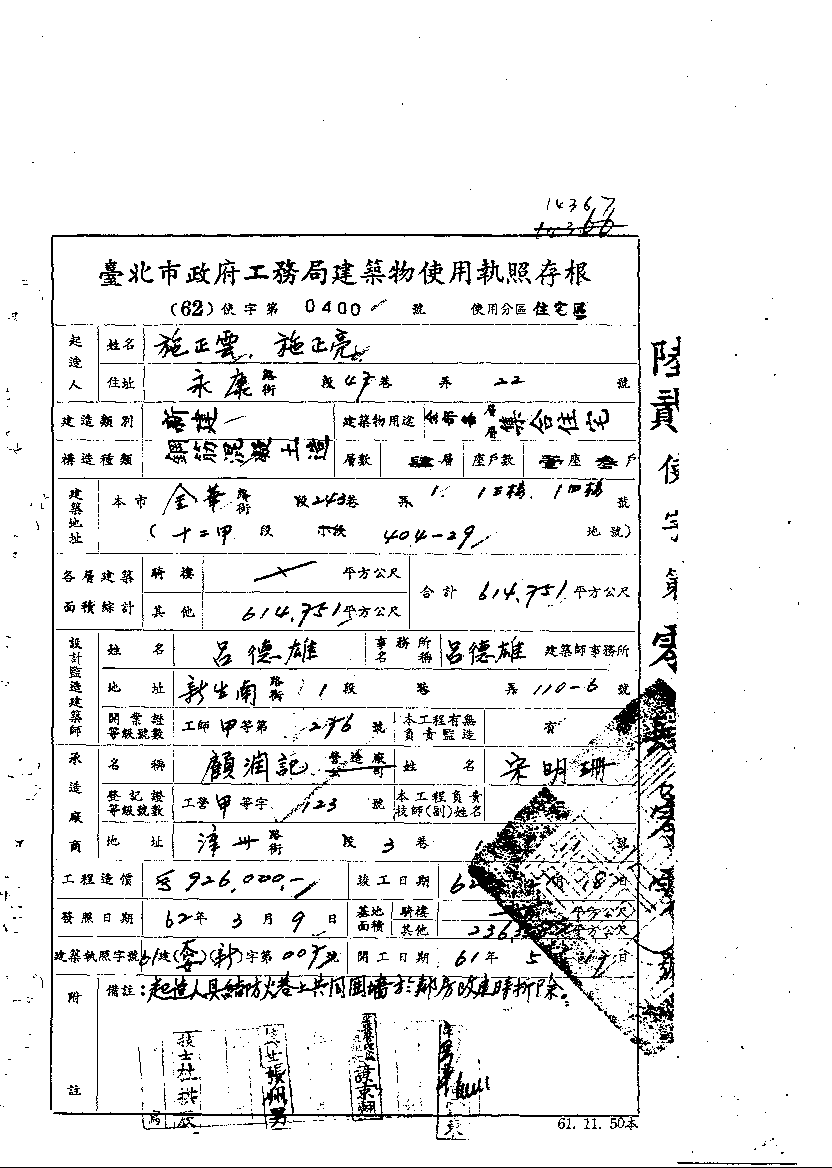 14367
14366
臺北市政府工務局建築物使用執照存根
(62)使字第 0400 號 使用分區 住宅區
起造人 姓名 施正雲、施正亮
住址 永康 路街 段 47 巷 弄 22 號
建造類別 新建 建築物用途 集合住宅
構造種類 鋼筋混凝土造 層數 肆層 座戶數 壹座叁戶
建築地址 本市 金華 路街 段 243 巷 弄 號
(十二甲 段 小段 404-29 地號)
各層建築面積綜計 騎樓 平方公尺 合計 614.751 平方公尺
其他 614.751 平方公尺
設計監造建築師 姓名 呂德雄 事務所名稱 呂德雄 建築師事務所
地址 新生南 路街 1 段 巷 弄 110-6 號
開業證等級號數 工師甲等第 號 本工程有無負責監造 有
承造廠商 名稱 顧潤記 營造廠公司 姓名 宋明珊
登記證等級號數 工營甲等字 123 號 本工程負責技師(副)姓名
地址 漳州 路街 段 3 巷 號
工程造價 926,000.- 竣工日期 62 月 18 日
發照日期 62年 3月 9日 基地面積 騎樓 平方公尺
其他 平方公尺
建築執照字號 61建( )( )字第 號 開工日期 61年 5 日
附註 備註:起造人具結防火巷上共同圍墻於鄰房改建時拆除。
61. 11. 50本
陸貳使字第零肆零零號